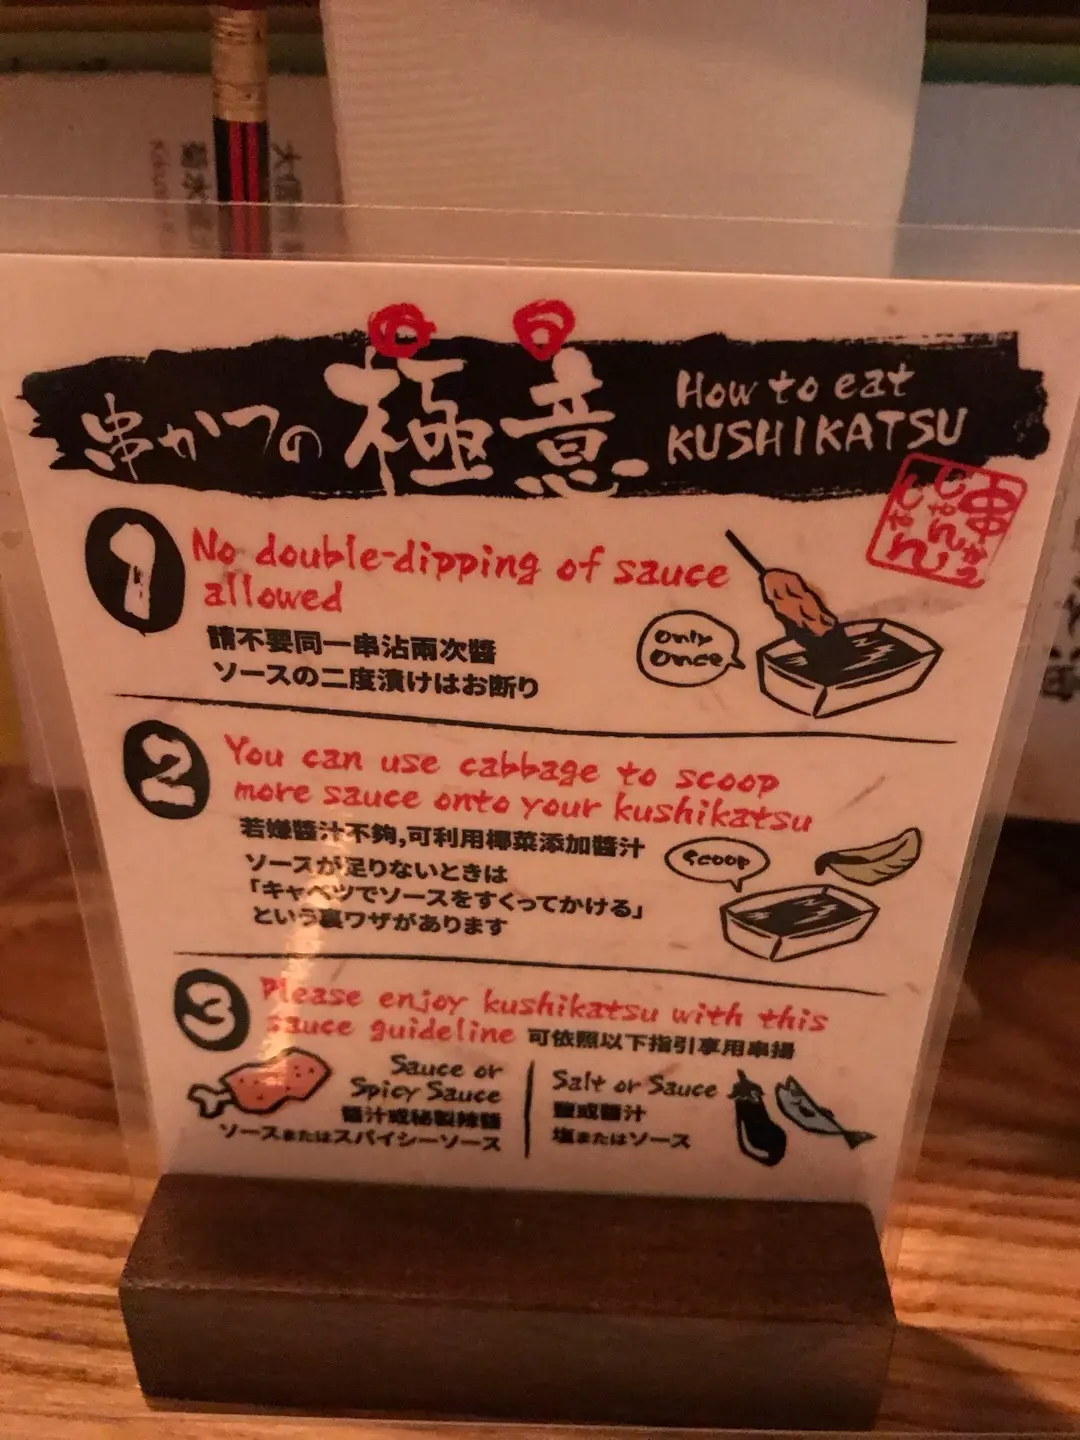 串かつの極意
How to eat
KUSHIKATSU
串かつ
じゃんじゃん
1
No double-dipping of sauce
allowed
請不要同一串沾兩次醬
ソースの二度漬けはお断り
only
once
2
You can use cabbage to scoop
more sauce onto your kushikatsu
若嫌醬汁不夠,可利用椰菜添加醬汁
ソースが足りないときは
「キャベツでソースをすくってかける」
という裏ワザがあります
scoop
3
Please enjoy kushikatsu with this
sauce guideline 可依照以下指引享用串揚
Sauce or
Spicy Sauce
醬汁或秘製辣醬
ソースまたはスパイシーソース
Salt or Sauce
鹽或醬汁
塩またはソース